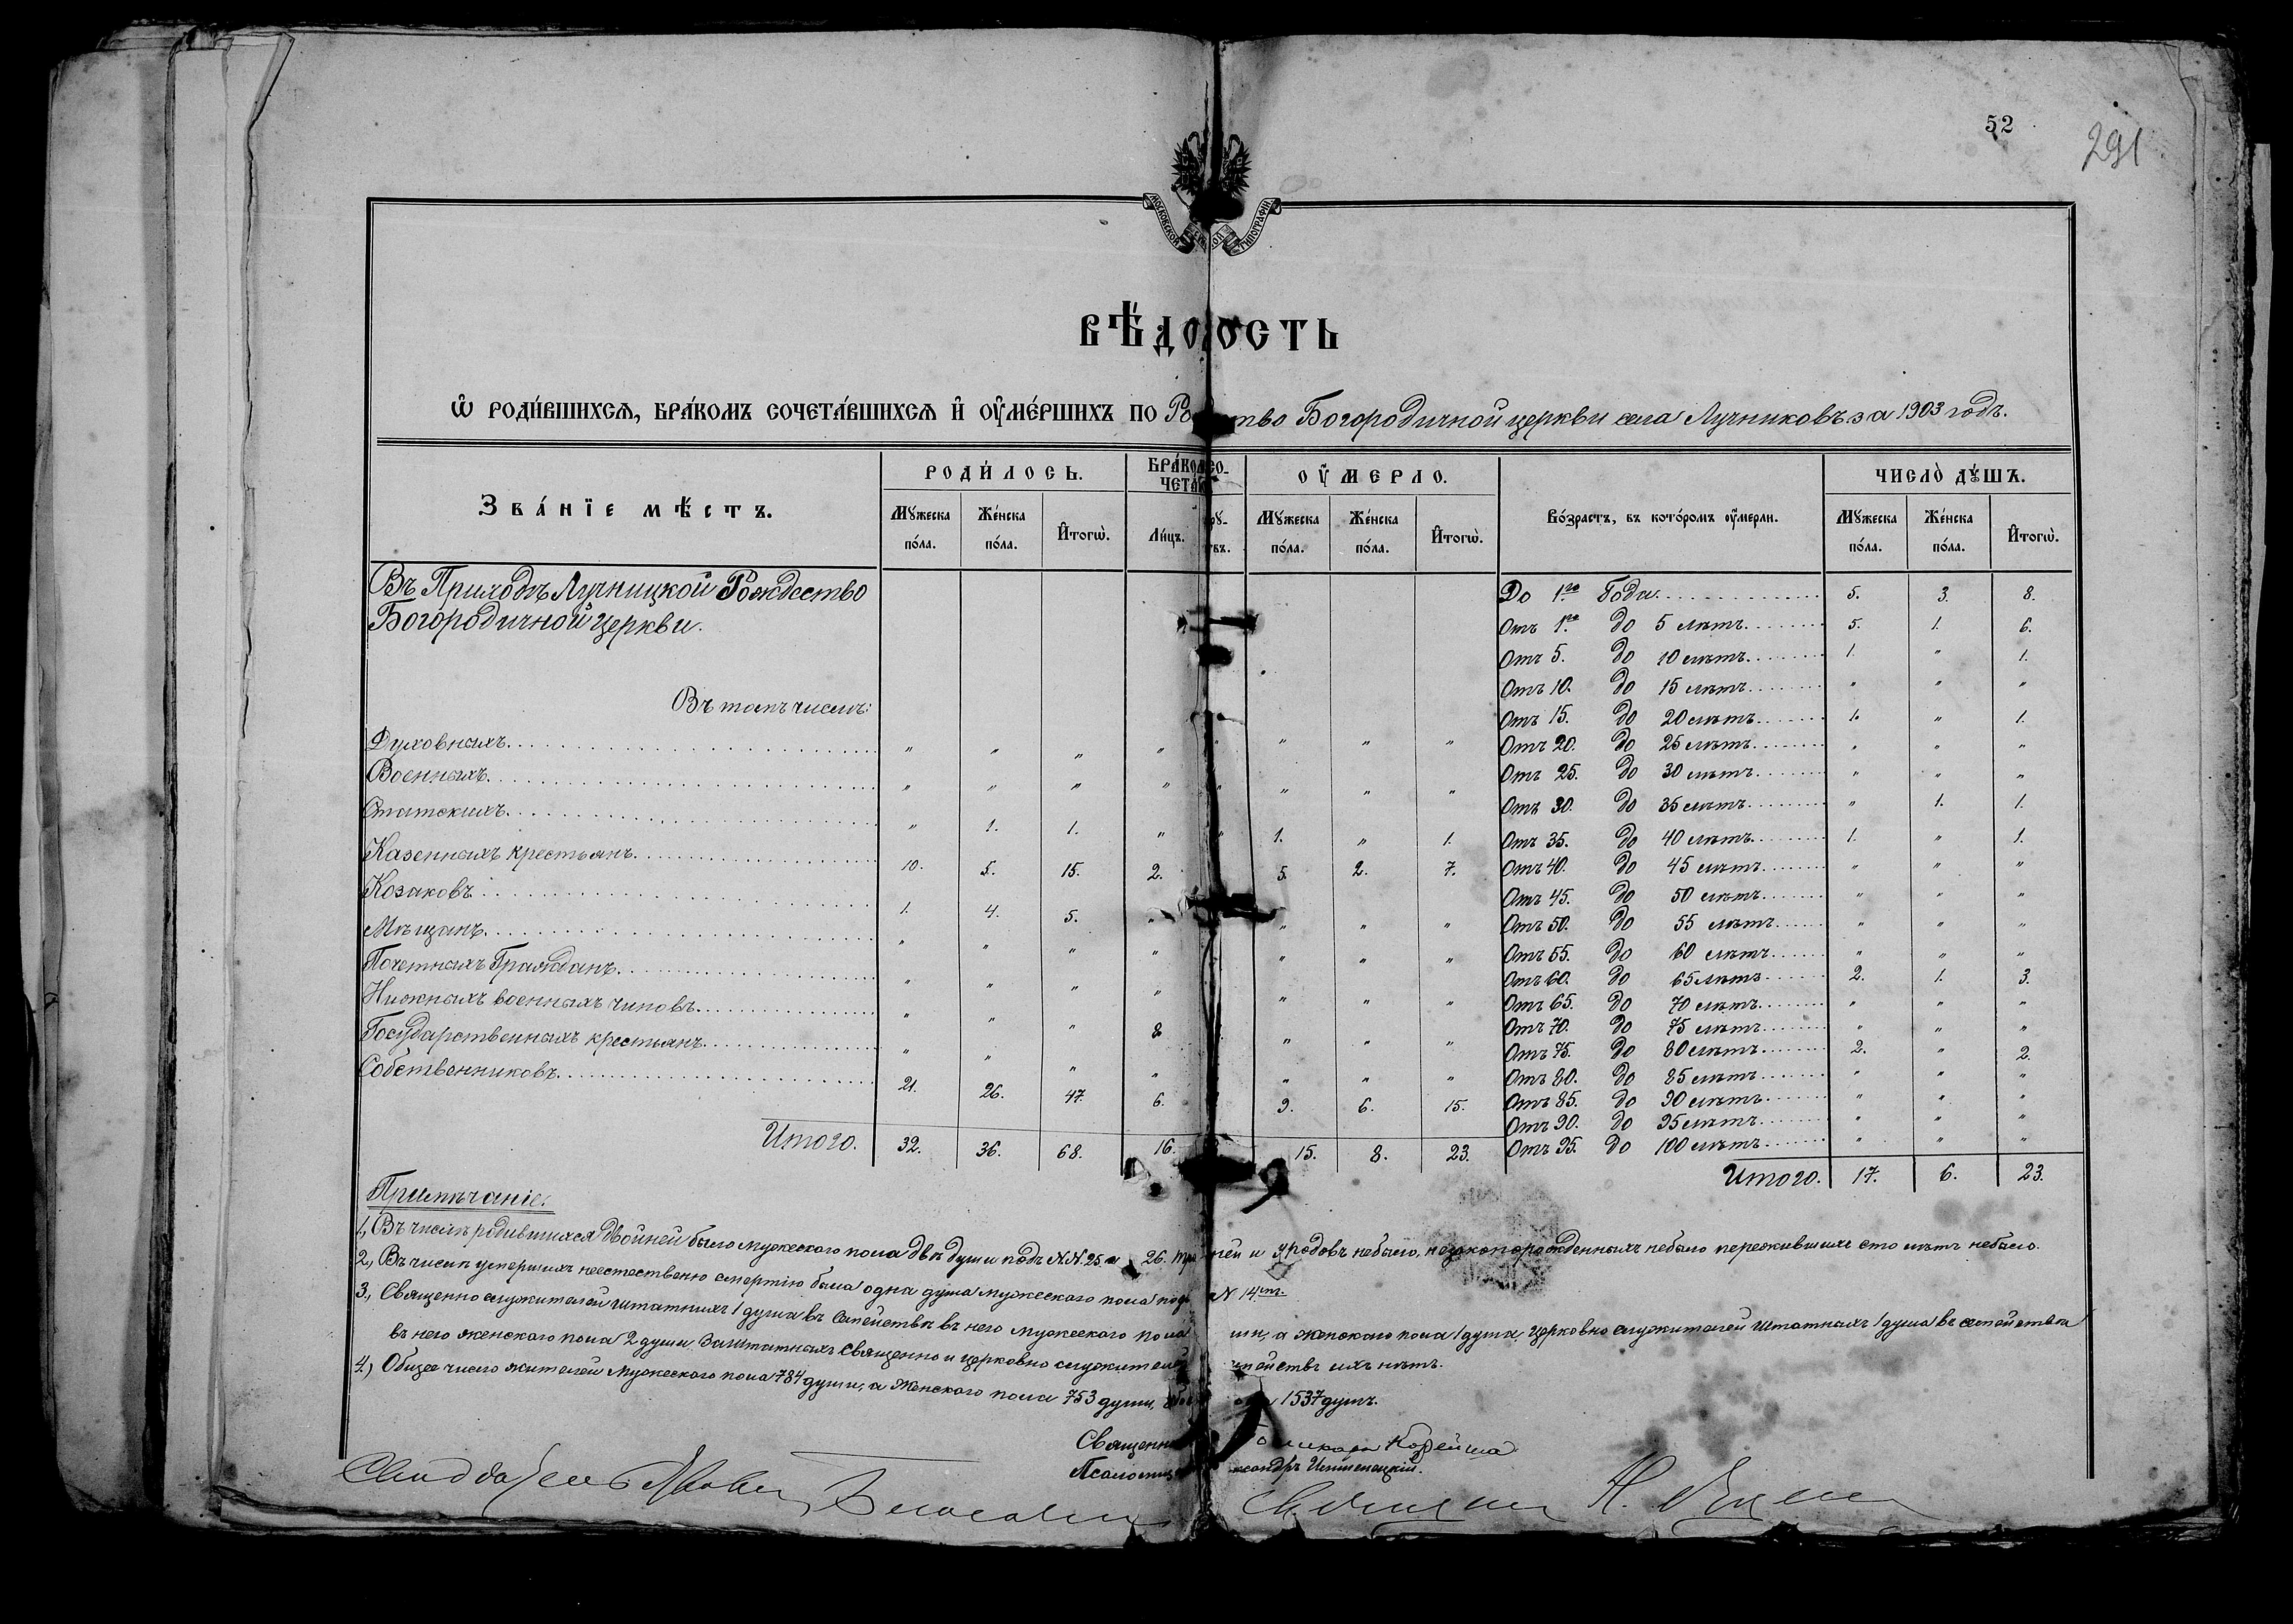 52
291
МОСКОВСКОЙ ТИПОГРАФІИ
ВѢДОМОСТЬ
Ѡ РОДИ́ВШИХСѦ, БРА́КОМЪ СОЧЕТА́ВШИХСѦ И҆ ОУ҆МЕ́РШИХЪ ПО Рождество Богородичной церкви села Лучниковъ за 1903 годъ.
Зва́нїе мѣстъ.
РОДИ́ЛОСЬ. Мꙋжеска по́ла. Же́нска по́ла. И҆тогѡ̀.
БРА́КОМЪ СОЧЕТА Ли́цъ.
ОУ҆МЕРЛО. Мꙋжеска по́ла. Же́нска по́ла. И҆тогѡ̀.
Во́зрастъ, въ кото́ромъ оу҆мерли.
ЧИСЛО̀ ДꙊ́ШЪ. Мꙋжеска по́ла. Же́нска по́ла. И҆тогѡ̀.
Въ Приходѣ Лучницкой Рождество
Богородичной церкви.
Въ томъ числѣ:
Духовныхъ " " " " " " " "
Военныхъ " " " " " " " "
Статскихъ " 1. 1. " " 1. " 1.
Казенныхъ крестьянъ 10. 5. 15. 2. 5. 2. 7.
Козаковъ 1. 4. 5. " " " "
Мѣщанъ " " " " " " "
Почетныхъ Гражданъ " " " " " " "
Нижныхъ военныхъ чиновъ " " " 8 " " "
Государственныхъ крестьянъ " " " " " " "
Собственниковъ 21. 26. 47. 6. 9. 6. 15.
Итого. 32. 36. 68. 16. 15. 8. 23.
До 1го Года 5. 3. 8.
Отъ 1го до 5 лѣтъ 5. 1. 6.
Отъ 5. до 10 лѣтъ 1. " 1.
Отъ 10. до 15 лѣтъ " " "
Отъ 15. до 20 лѣтъ 1. " 1.
Отъ 20. до 25 лѣтъ " " "
Отъ 25. до 30 лѣтъ " " "
Отъ 30. до 35 лѣтъ " 1. 1.
Отъ 35. до 40 лѣтъ 1. " 1.
Отъ 40. до 45 лѣтъ " " "
Отъ 45. до 50 лѣтъ " " "
Отъ 50. до 55 лѣтъ " " "
Отъ 55. до 60 лѣтъ " " "
Отъ 60. до 65 лѣтъ 2. 1. 3.
Отъ 65. до 70 лѣтъ " " "
Отъ 70. до 75 лѣтъ " " "
Отъ 75. до 80 лѣтъ 2. " 2.
Отъ 80. до 85 лѣтъ " " "
Отъ 85. до 90 лѣтъ " " "
Отъ 90. до 95 лѣтъ " " "
Отъ 95. до 100 лѣтъ " " "
Итого. 17. 6. 23.
Примѣчаніе.
1., Въ числѣ родившихся двойней было мужескаго пола двѣ души подъ N.N. 25. и 26. и уродовъ небыло, незаконорожденныхъ небыло пережившихъ сто лѣтъ небыло.
2., Въ числѣ умершихъ неестественно смертію была одна душа мужескаго пола подъ N 14мъ.
3., Священно служителей штатныхъ 1 душа въ Семействѣ въ него мужескаго пола а женскаго пола 1 душа, церковно служителей штатныхъ 1 душа въ семействѣ
въ него женскаго пола 2 души, Заштатныхъ Священно и церковно служителей ихъ нѣтъ.
4.) Общее число жителей мужескаго пола 784 души, а Женского пола 753 души, 1537 душъ.
Священникъ Корейша
Псаломщикъ